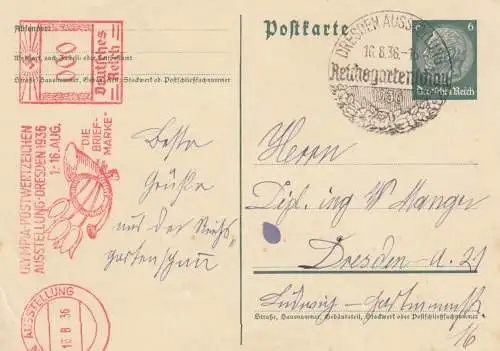 Postkarte
Absender:
Wohnort, auch Zustell- oder Leitpostamt
Straße, Hausnummer, Gebäudeteil, Stockwerk od. Postschließfachnummer
000
Deutsches
Reich
OLYMPIA-POSTWERTZEICHEN
AUSSTELLUNG-DRESDEN 1936
1.-16. AUG.
„DIE
BRIEF-
MARKE"
AUSSTELLUNG
16.8.36
DRESDEN AUSSTELLUNG
16.8.36.
Reichsgartenschau
1936
6
Deutsches Reich
Beste
Grüße
aus der Reichs
gartenschau
Herrn
Dipl. ing W
Dresden-A. 21
Ludwig-Hartmannstr.
Straße, Hausnummer, Gebäudeteil, Stockwerk oder Postschließfachnummer
16